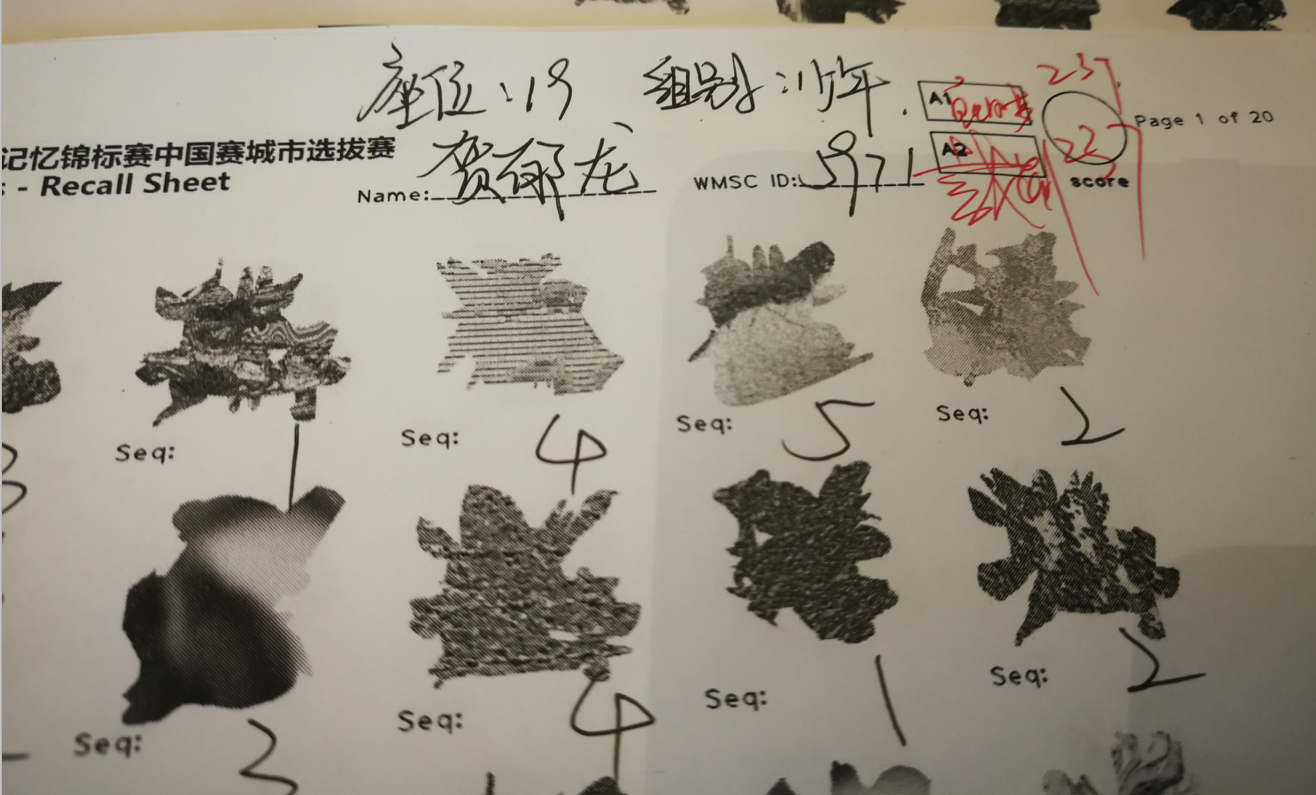 座位:19 组别:少年.
A1
237
Page 1 of 20
记忆锦标赛中国赛城市选拔赛
- Recall Sheet
Name: 贺郁龙
WMSC ID: 5971
A2
22
score
Seq: 1
Seq: 4
Seq: 5
Seq: 2
3
Seq: 3
Seq: 4
Seq: 1
Seq: 2